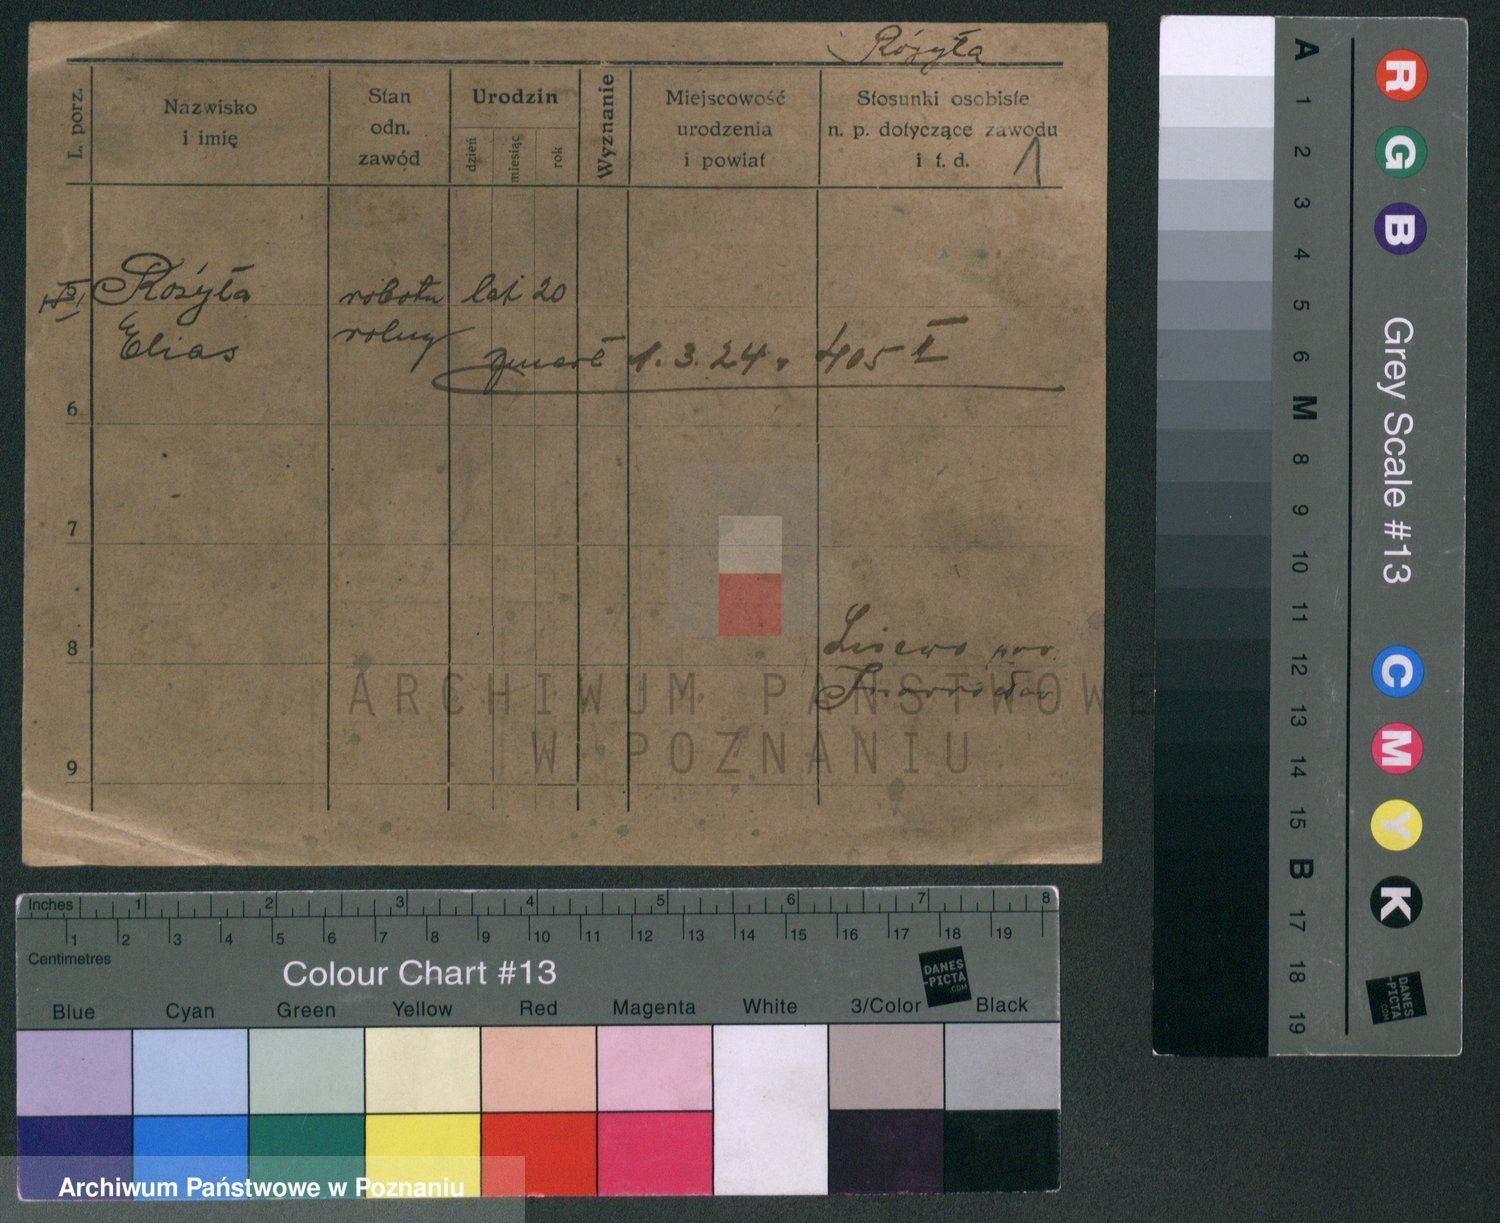 Różyła
L. porz.
Nazwisko
i imię
Stan
odn.
zawód
Urodzin
dzień
miesiąc
rok
Wyznanie
Miejscowość
urodzenia
i powiat
Stosunki osobiste
n. p. dotyczące zawodu
i t. d.
1
Rożyła
Elias
robotn
rolny
lat 20
zmarł 1.3.24. 405 I
6
7
8
9
ARCHIWUM PAŃSTWOWE
W POZNANIU
A
1
2
3
4
5
6
M
8
9
10
11
12
13
14
15
B
17
18
19
R
G
B
Grey Scale #13
C
M
Y
K
DANES
-PICTA
.COM
Inches 1 2 3 4 5 6 7 8
1 2 3 4 5 6 7 8 9 10 11 12 13 14 15 16 17 18 19
Centimetres
Colour Chart #13
DANES
-PICTA
.COM
Blue Cyan Green Yellow Red Magenta White 3/Color Black
Archiwum Państwowe w Poznaniu